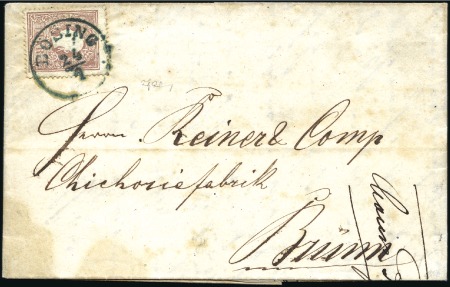 BÖSING
Herrn Reiner & Comp
Chichoriefabrik
Brünn